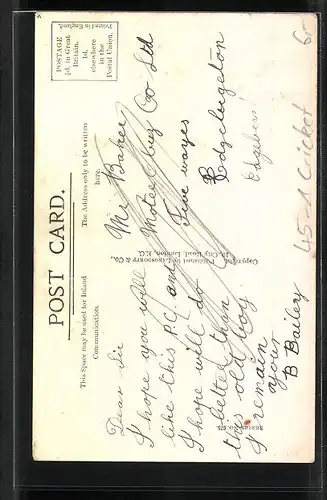 POST CARD.
This Space may be used for Inland
Communication.
The Address only to be written
here.
POSTAGE
½d. in Great
Britain.
1d.
elsewhere
in the
Postal Union.
Printed in England.
Dear Sir
I hope you will
like this P.C and
I hope will do
better than
this old boy
I remain
yours
B Bailey
Mr Baker
Motor Buz Co Ltd
Five wayes
Edgebugston
City Road, London, E.C.
45-1 Cricket
6-